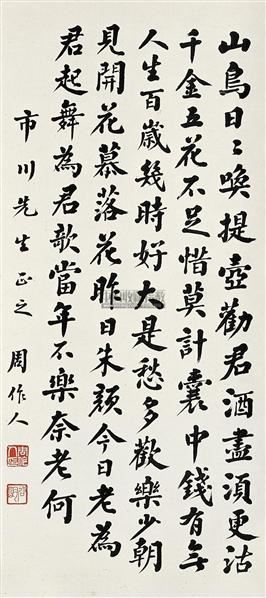 山鳥日〻喚提壺勸君酒盡須更沽
千金五花不足惜莫計囊中錢有無
人生百歲幾時好大是愁多歡樂少朝
見開花暮落花昨日朱顏今日老為
君起舞為君歌當年不樂奈老何
市川先生正之
周作人